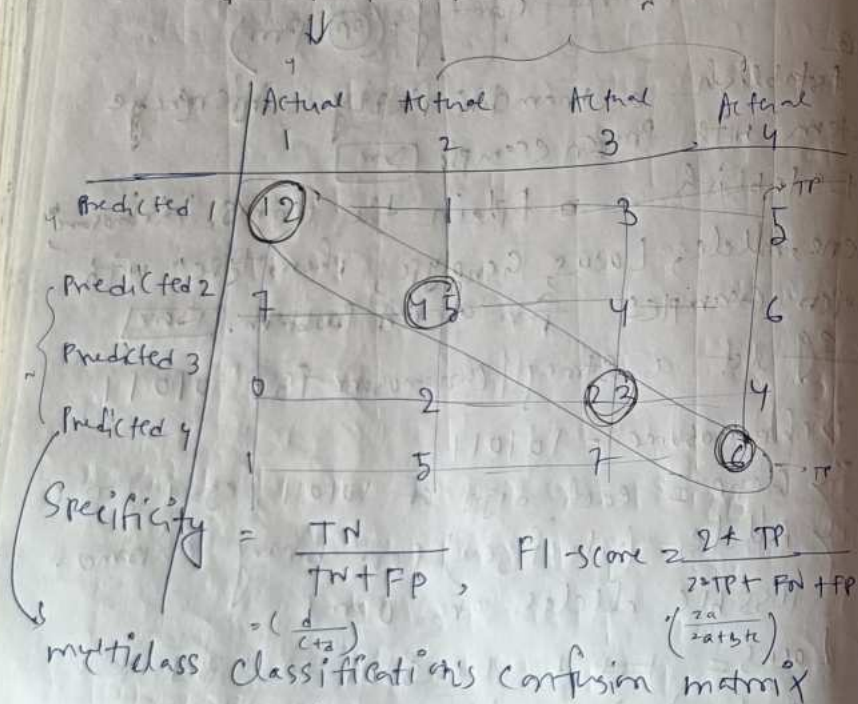 Actual Actual Actual Actual
1 2 3 4
Predicted 1 12 1 3 5
TP
Predicted 2 7 45 4 6
Predicted 3 0 2 23 4
Predicted 4 1 5 7 6
TP
Specificity = TN / TN + FP , F1-score = 2 * TP / 2*TP + FN + FP
= ( d / c+d ) ( 2a / 2a+b+c )
multiclass classification's confusion matrix